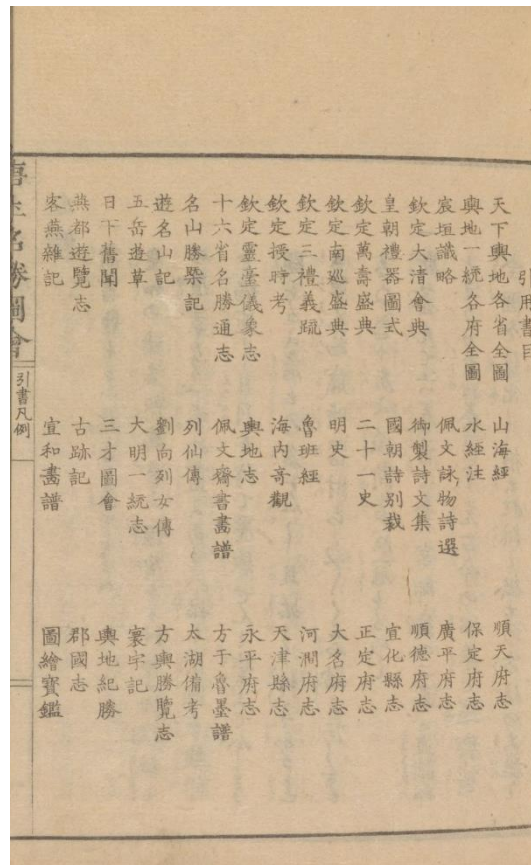 引用書目
天下輿地各省全圖　山海經　順天府志
輿地一統各府全圖　水經注　保定府志
宸垣識略　佩文詠物詩選　廣平府志
欽定大清會典　御製詩文集　順德府志
皇朝禮器圖式　國朝詩別裁　宣化縣志
欽定萬壽盛典　二十一史　正定府志
欽定南巡盛典　明史　大名府志
欽定三禮義疏　魯班經　河澗府志
欽定授時考　海內奇觀　天津縣志
欽定靈臺儀象志　輿地志　永平府志
十六省名勝通志　佩文齋書畫譜　方于魯墨譜
名山勝槩記　列仙傳　太湖備考
遊名山記　劉向列女傳　方輿勝覽志
五岳遊草　大明一統志　寰宇記
日下舊聞　三才圖會　輿地紀勝
燕都遊覽志　古跡記　郡國志
客燕雜記　宣和畫譜　圖繪寶鑑
唐土名勝圖會　引書凡例